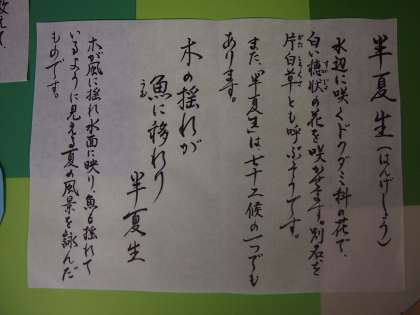 半夏生(はんげしょう)
水辺に咲くドクダミ科の花で、
白い穂状の花を咲かせます。別名を
片白草とも呼ぶそうです。
また、「半夏生」は、七十二候の一つでも
あります。
木の揺れが
魚に移れり
半夏生
木が風に揺れ水面に映り、魚も揺れて
いるように見える夏の風景を詠んだ
ものです。